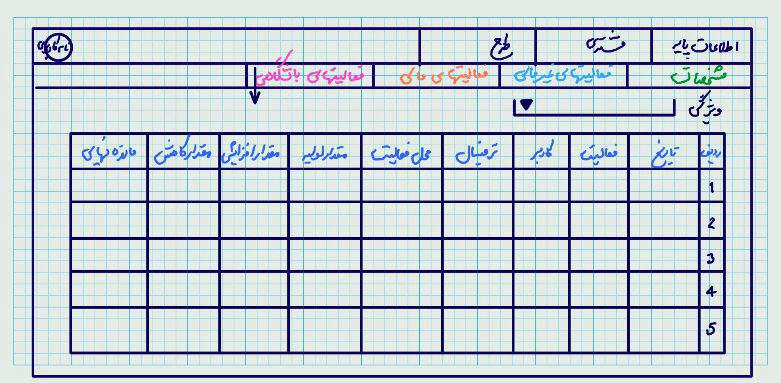 اطلاعات پایه مشتری طرح
مشخصات فعالیتهای غیرمالی فعالیتهای مالی فعالیتهای باشگاهی
ویژگی
ردیف تاریخ فعالیت کاربر ترمینال محل فعالیت مقدار اولیه مقدار افزایش مقدار کاهش مانده نهایی
1
2
3
4
5